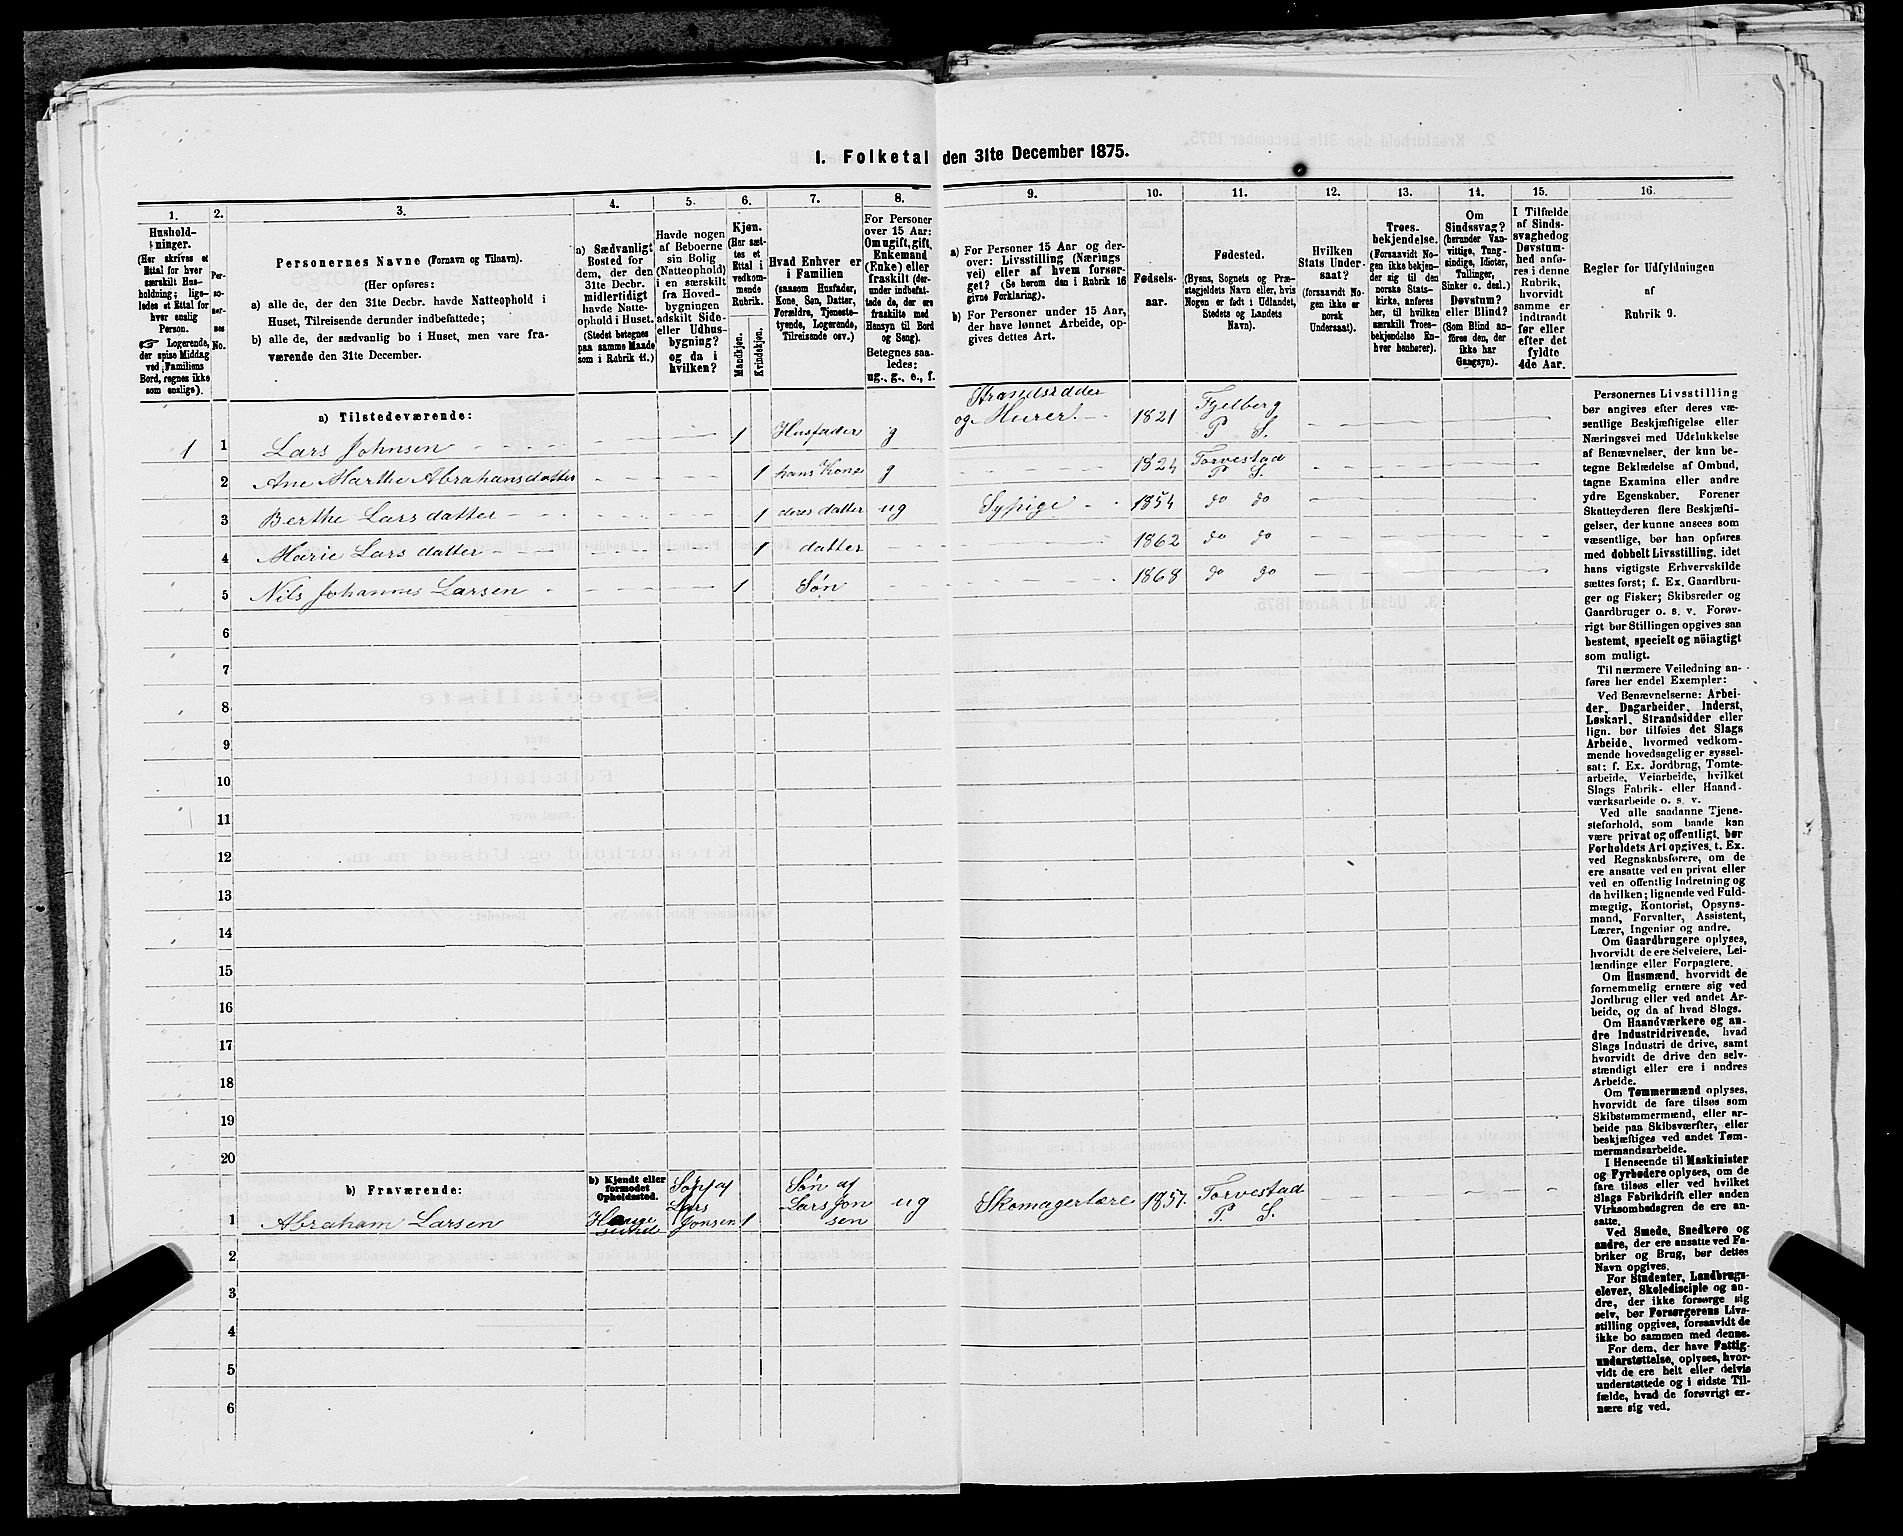 1. Folketal den 31te December 1875.
1. 2. 3. 4. 5. 6. 7. 8. 9. 10. 11. 12. 13. 14. 15. 16.
Hushold-
ninger.
(Her skrives et
Ettal for hver
særskilt Hus-
holdning; lige-
ledes et Ettal for
hver enslig
Person.
☞ Logerende,
der spise Middag
ved Familiens
Bord, regnes ikke
som enslige).
Per-
so-
ner-
nes
No.
Personernes Navne (Fornavn og Tilnavn).
(Her opføres:
a) alle de, der den 31te Decbr. havde Natteophold i
Huset, Tilreisende derunder indbefattede;
b) alle de, der sædvanlig bo i Huset, men vare fra-
værende den 31te December.
a) Sædvanligt
Bosted for
dem, der den
31te Decbr.
midlertidigt
havde Natte-
ophold i Huset.
(Stedet betegnes
paa samme Maade
som i Rubrik 11.)
Havde nogen
af Beboerne
sin Bolig
(Natteophold)
i en særskilt
fra Hoved-
bygningen
adskilt Side-
eller Udhus-
bygning?
og da i
hvilken?
Kjøn.
(Her sæt-
tes et
Ettal i
vedkom-
mende
Rubrik.
Mandkjøn.
Kvindekjøn.
Hvad Enhver er
i Familien
(saasom Husfader,
Kone, Søn, Datter,
Forældre, Tjeneste-
tyende, Logerende,
Tilreisende osv.)
For Personer
over 15 Aar:
Om ugift, gift,
Enkemand
(Enke) eller
fraskilt (der-
under indbefat-
tede de, der ere
fraskilte med
Hensyn til Bord
og Seng).
Betegnes saa-
ledes:
ug., g., e., f.
a) For Personer 15 Aar og der-
over: Livsstilling (Nærings
vei) eller af hvem forsør-
get? (Se herom den i Rubrik 16
givne Forklaring).
b) For Personer under 15 Aar,
der have lønnet Arbeide, op-
gives dettes Art.
Fødsels-
aar.
Fødested.
(Byens, Sognets og Præ-
stegjeldets Navn eller, hvis
Nogen er født i Udlandet,
Stedets og Landets
Navn).
Hvilken
Stats Under-
saat?
(forsaavidt No-
gen ikke er
norsk
Undersaat).
Troes-
bekjendelse.
(Forsaavidt No-
gen ikke bekjen-
der sig til den
norske Stats-
kirke, anføres
her, til hvilken
særskilt Troes-
bekjendelse En-
hver henhører).
Om
Sindssvag?
(herunder Van-
vittige, Tung-
sindige, Idioter,
Tullinger,
Sinker o. desl.)
Døvstum?
eller Blind?
(Som Blind an-
føres den, der
ikke har
Gangsyn).
I Tilfælde
af Sinds-
svaghed og
Døvstum-
hed anfø-
res i denne
Rubrik,
hvorvidt
samme er
indtraadt
før eller
efter det
fyldte
4de Aar.
Regler for Udfyldningen
af
Rubrik 9.
a) Tilstedeværende:
1 1 Lars Johnsen 1 Husfader g Strandsidder og Murer 1821 Fjelberg P. S.
2 Ane Marthe Abrahamsdatter 1 hans Kone g 1824 Torvestad P. S.
3 Berthe Larsdatter 1 deres datter ug Sypige 1854 do do
4 Marie Larsdatter 1 datter 1862 do do
5 Nils Johannes Larsen 1 Søn 1868 do do
6
7
8
9
10
11
12
13
14
15
16
17
18
19
20
b) Fraværende:
b) Kjendt eller
formodet
Opholdssted.
1 Abraham Larsen Haugesund Søn af Lars Jonsen 1 Søn af Lars Jonsen ug Skomagerlære 1857. Torvestad P. S.
2
3
4
5
6
Personernes Livsstilling
bør angives efter deres væ-
sentlige Beskjæftigelse eller
Næringsvei med Udelukkelse
af Benævnelser, der kun be-
tegne Beklædelse af Ombud,
tagne Examina eller andre
ydre Egenskaber. Forener
Skatteyderen flere Beskjæfti-
gelser, der kunne ansees som
væsentlige, bør han opføres
med dobbelt Livsstilling, idet
hans vigtigste Erhvervskilde
sættes først; f. Ex. Gaardbru-
ger og Fisker; Skibsreder og
Gaardbruger o. s. v. Forøv-
rigt bør Stillingen opgives saa
bestemt, specielt og nöiagtigt
som muligt.
Til nærmere Veiledning an-
føres her endel Exempler:
Ved Benævnelserne: Arbei-
der, Dagarbeider, Inderst,
Løskarl, Strandsidder eller
lign. bør tilføies det Slags
Arbeide, hvormed vedkom-
mende hovedsagelig er syssel-
sat; f. Ex. Jordbrug, Tomte-
arbeide, Veiarbeide, hvilket
Slags Fabrik- eller Haand-
værksarbeide o. s. v.
Ved alle saadanne Tjene-
steforhold, som baade kan
være privat og offentligt, bør
Forholdets Art opgives, t. Ex.
ved Regnskabsførere, om de
ere ansatte ved en privat eller
ved en offentlig Indretning og
da hvilken; lignende ved Fuld-
mægtig, Kontorist, Opsyns-
mand, Forvalter, Assistent,
Lærer, Ingeniør og andre.
Om Gaardbrugere oplyses,
hvorvidt de ere Selveiere, Lei-
lændinge eller Forpagtere.
Om Husmænd, hvorvidt de
fornemmelig ernære sig ved
Jordbrug eller ved andet Ar-
beide, og da af hvad Slags.
Om Haandværkere og an-
dre Industridrivende, hvad
Slags Industri de drive, samt
hvorvidt de drive den selv-
stændigt eller ere i andres
Arbeide.
Om Tømmermænd oplyses,
hvorvidt de fare tilsøs som
Skibstømmermænd, eller ar-
beide paa Skibsværfter, eller
beskjæftiges ved andet Tøm-
mermandsarbeide.
I Henseende til Maskinister
og Fyrbødere oplyses, om de
fare tilsøs eller ved hvilket
Slags Fabrikdrift eller anden
Virksomhedsgren de ere an-
satte.
Ved Smede, Snedkere og
andre, der ere ansatte ved Fa-
briker og Brug, bør dettes
Navn opgives.
For Studenter, Landbrugs-
elever, Skoledisciple og an-
dre, der ikke forsørge sig
selv, bør Forsørgerens Livs-
stilling opgives, forsaavidt de
ikke bo sammen med denne.
For dem, der have Fattig-
understøttelse, oplyses, hvor-
vidt de ere helt eller delvis
understøttede og i sidste Til-
fælde, hvad de forøvrigt er-
nære sig ved.